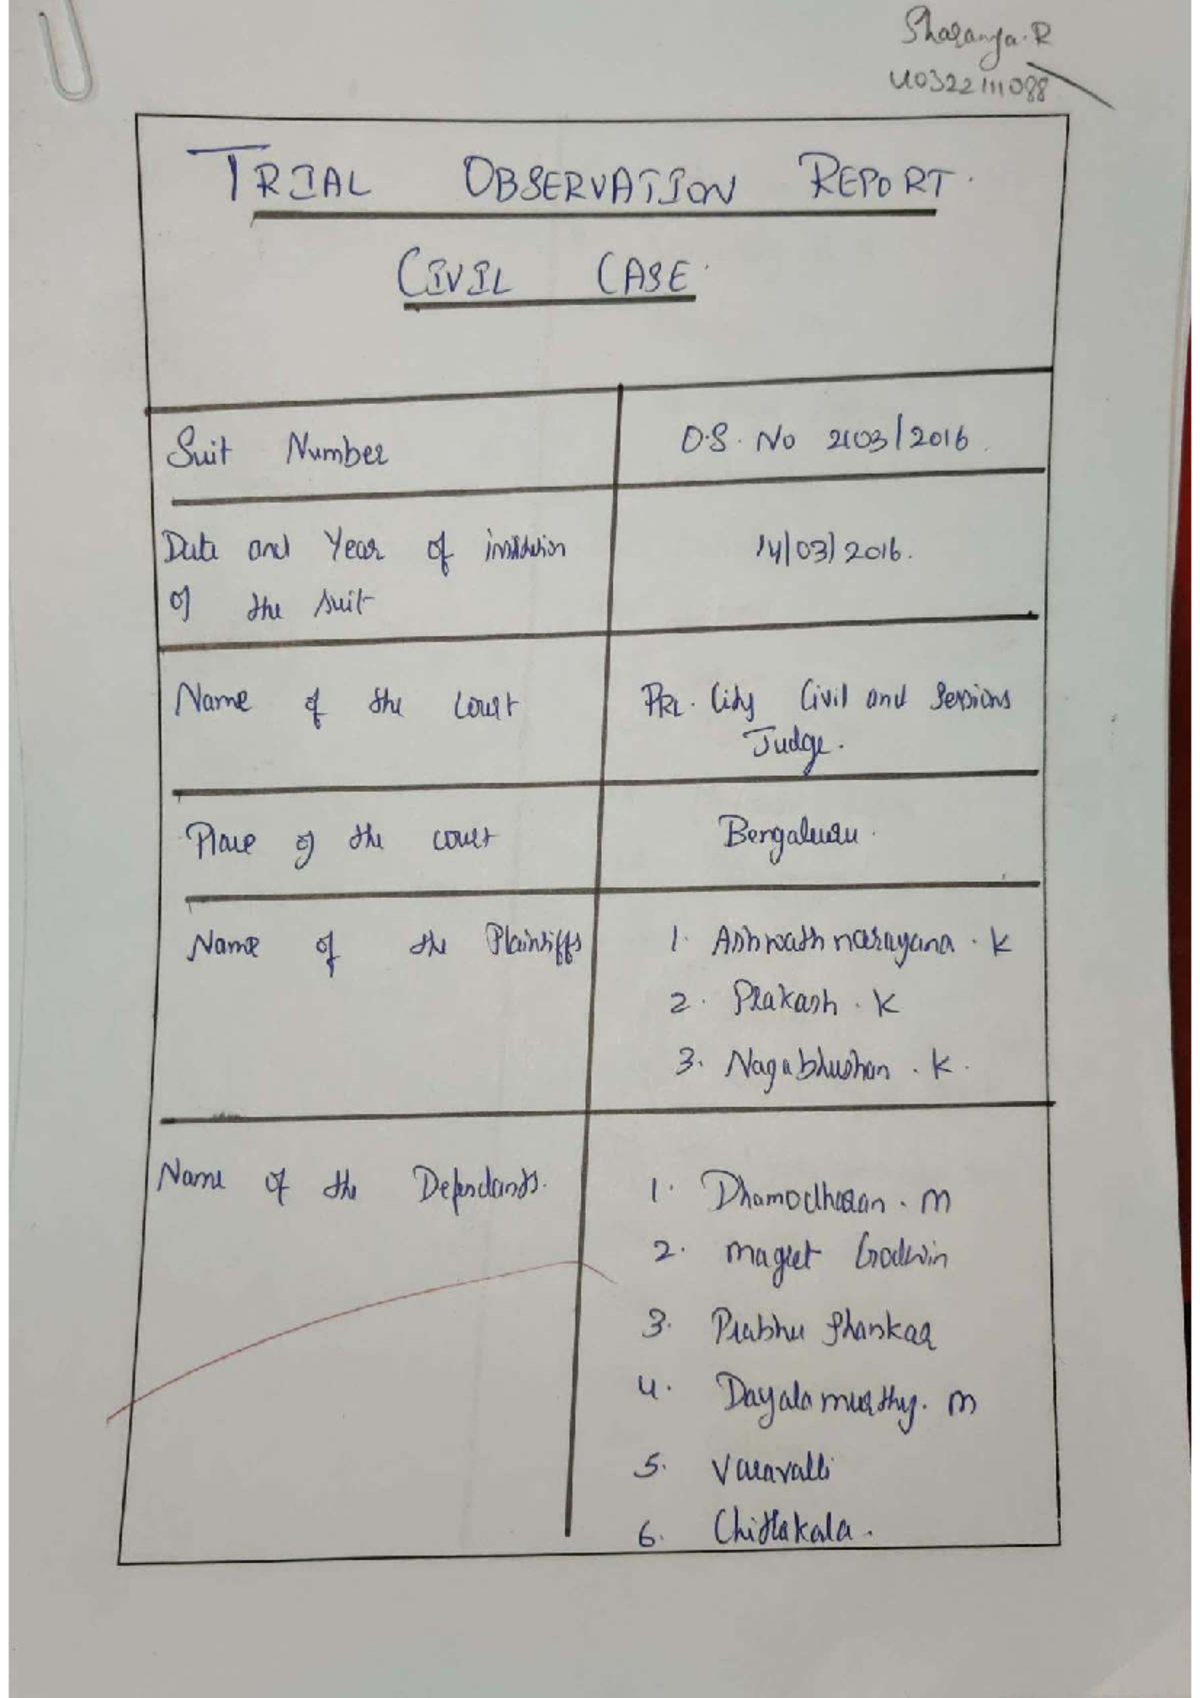 Sharanya.R
U0322111088
TRIAL OBSERVATION REPORT.
CIVIL CASE.
Suit Number
O.S. No 2103/2016.
Date and Year of institution
of the suit
14/03/2016.
Name of the court
PRL. City Civil and Sessions
Judge.
Place of the court
Bengaluru.
Name of the Plaintiffs
1. Ashwath narayana . K
2. Prakash . K
3. Nagabhushan . K.
Name of the Defendants.
1. Dhamodharan . M
2. Magret Godwin
3. Prabhu Shankar
4. Dayalamurthy. M
5. Varavalli
6. Chitrakala.